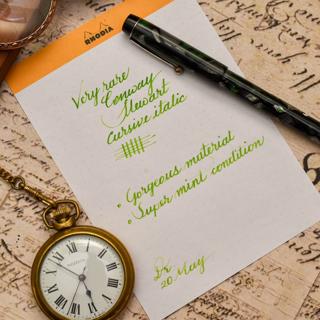 RHODIA
Very rare
Conway
Stewart
cursive italic
• Gorgeous material
• Super mint condition
20 May